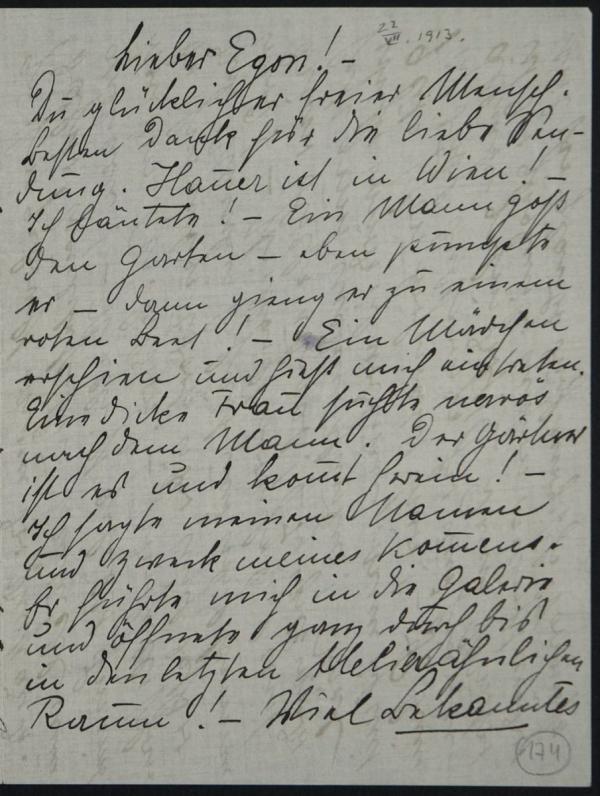 22/VII. 1913.
Lieber Egon! –
Du glücklicher freier Mensch.
Besten Dank für die liebe Sen-
dung. Hauer ist in Wien! –
Ich läutete! – Ein Mann goß
den Garten – eben pumpte
er – dann gieng er zu einem
roten Beet! – Ein Mädchen
erschien und hieß mich eintreten.
Eine dicke Frau suchte nervös
nach dem Mann. Der Gärtner
ist es und kom̄t herein! –
Ich sagte meinen Namen
und Zweck meines Kom̄ens.
Er führte mich in die Galerie
und öffnete ganz durch bis
in den letzten Atelierähnlichen
Raum! – Viel Bekanntes
174